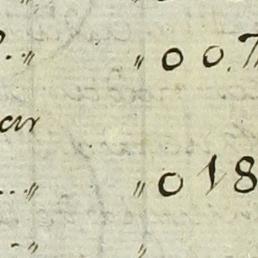 . „ „ 0 0. T
ar
... „ „ 0 18
.. „ „